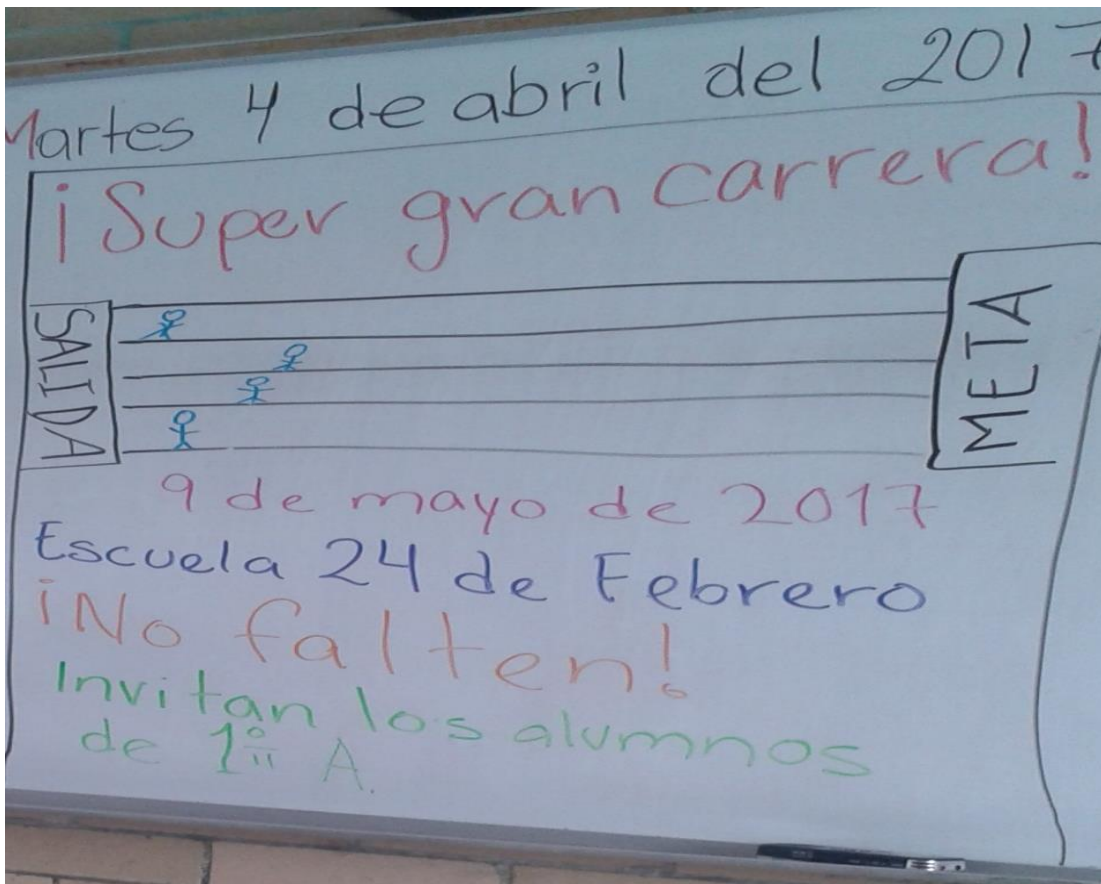 Martes 4 de abril del 2017
¡Super gran carrera!
SALIDA
META
9 de mayo de 2017
Escuela 24 de Febrero
¡No falten!
Invitan los alumnos
de 1° A.